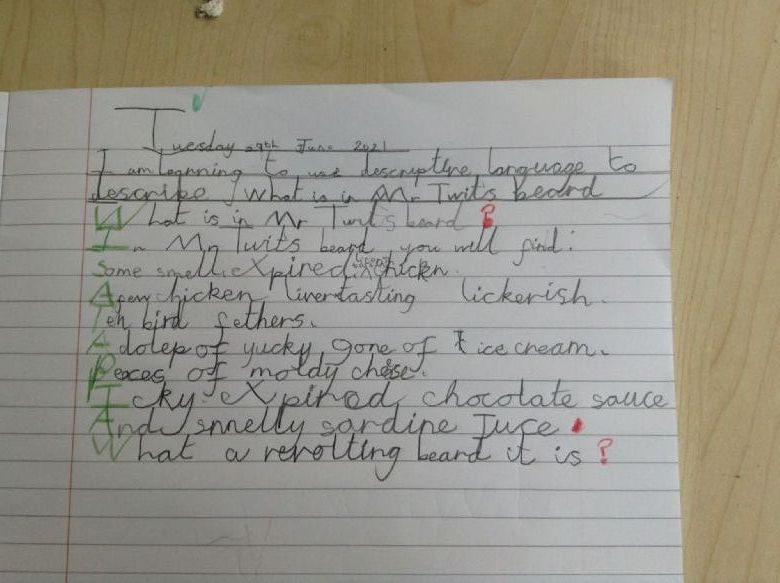 T
Tuesday 29th June 2021
I am learning to use descriptive language to
describe what is in Mr Twit's beard
What is in Mr Twit's beard ?
In Mr Twits beard you will find:
Some smelli eXpired chicken.
A peny chicken livertasting lickerish.
Ten bird fethers.
A dolep of yucky gone of ice cream.
Peaces of moldy chese.
Icky eXpired chocolate sauce
And smelly sardine Juce.
What a revolting beard it is ?